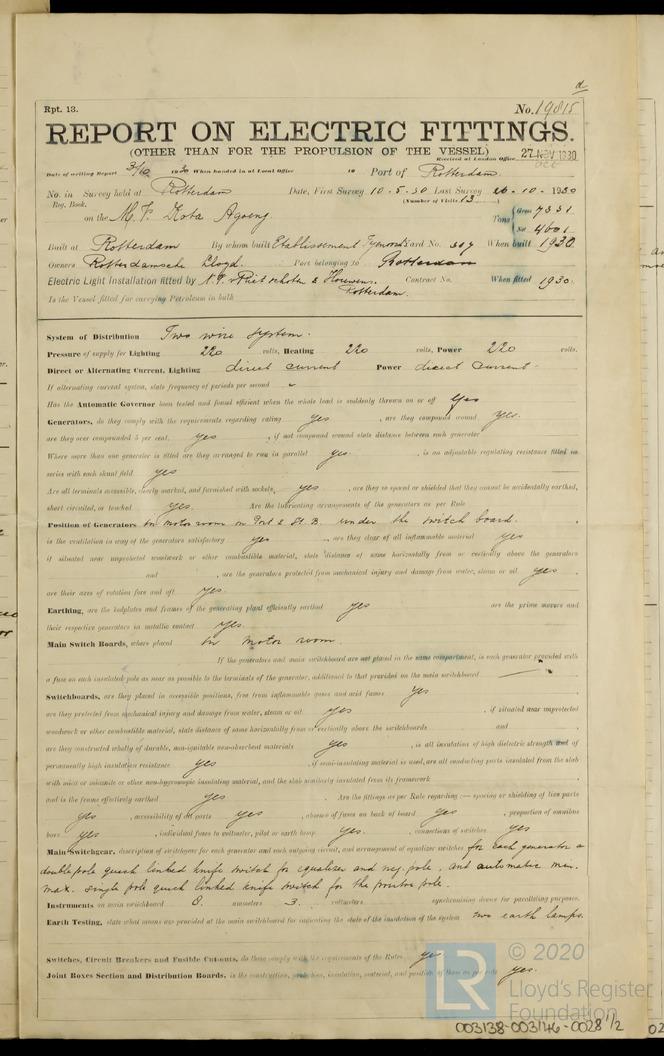 d
Rpt. 13.
No. 19815
REPORT ON ELECTRIC FITTINGS.
(OTHER THAN FOR THE PROPULSION OF THE VESSEL)
Received at London Office 27 NOV 1930
Date of writing Report 3/10 1930 When handed in at Local Office 19 Port of Rotterdam.
No. in Survey held at Rotterdam Date, First Survey 10-5-30 Last Survey 26-10-1930
Reg. Book. (Number of Visits 13
on the M.V. Kota Agoeng Tons { Gross 7331
Net 4601
Built at Rotterdam By whom built Etablissement Fyenoord Yard No. 307 When built 1930
Owners Rotterdamsche Lloyd. Port belonging to Rotterdam
Electric Light Installation fitted by N.V. v Rietschoten & Houwens. Contract No. When fitted 1930.
Rotterdam.
Is the Vessel fitted for carrying Petroleum in bulk
System of Distribution Two wire system.
Pressure of supply for Lighting 220 volts, Heating 220 volts, Power 220 volts.
Direct or Alternating Current, Lighting direct current Power direct current.
If alternating current system, state frequency of periods per second
Has the Automatic Governor been tested and found efficient when the whole load is suddenly thrown on or off yes
Generators, do they comply with the requirements regarding rating yes , are they compound wound yes.
are they over compounded 5 per cent. yes , if not compound wound state distance between each generator
Where more than one generator is fitted are they arranged to run in parallel yes , is an adjustable regulating resistance fitted in
series with each shunt field yes
Are all terminals accessible, clearly marked, and furnished with sockets, yes , are they so spaced or shielded that they cannot be accidentally earthed,
short circuited, or touched yes. Are the lubricating arrangements of the generators as per Rule
Position of Generators In motor room on Port & St. B. under the switch board.
is the ventilation in way of the generators satisfactory yes , are they clear of all inflammable material yes
if situated near unprotected woodwork or other combustible material, state distance of same horizontally from or vertically above the generators
and , are the generators protected from mechanical injury and damage from water, steam or oil yes
are their axes of rotation fore and aft yes.
Earthing, are the bedplates and frames of the generating plant efficiently earthed yes are the prime movers and
their respective generators in metallic contact yes.
Main Switch Boards, where placed In motor room.
If the generators and main switchboard are not placed in the same compartment, is each generator provided with
a fuse on each insulated pole as near as possible to the terminals of the generator, additional to that provided on the main switchboard
Switchboards, are they placed in accessible positions, free from inflammable gases and acid fumes yes
are they protected from mechanical injury and damage from water, steam or oil yes , if situated near unprotected
woodwork or other combustible material, state distance of same horizontally from or vertically above the switchboards and
are they constructed wholly of durable, non-ignitable non-absorbent materials yes , is all insulation of high dielectric strength and of
permanently high insulation resistance yes , if semi-insulating material is used, are all conducting parts insulated from the slab
with mica or micanite or other non-hygroscopic insulating material, and the slab similarly insulated from its framework
and is the frame effectively earthed yes Are the fittings as per Rule regarding:— spacing or shielding of live parts
yes , accessibility of all parts yes , absence of fuses on back of board yes , proportion of omnibus
bars yes , individual fuses to voltmeter, pilot or earth lamp yes. , connections of switches yes
Main Switchgear, description of switchgear for each generator and each outgoing circuit, and arrangement of equalizer switches for each generator a
double pole quick linked knife switch for equaliser and neg. pole, and automatic min.
max. single pole quick linked knife switch for the positive pole.
Instruments on main switchboard 8. ammeters 3. voltmeters synchronising device for paralleling purposes.
Earth Testing, state what means are provided at the main switchboard for indicating the state of the insulation of the system two earth lamps.
Switches, Circuit Breakers and Fusible Cut-outs, do these comply with the requirements of the Rules yes.
Joint Boxes Section and Distribution Boards, is the construction, protection, insulation, material, and position of these as per rule yes.
LR
© 2020
Lloyd's Register
Foundation
003138-003146-0028 1/2